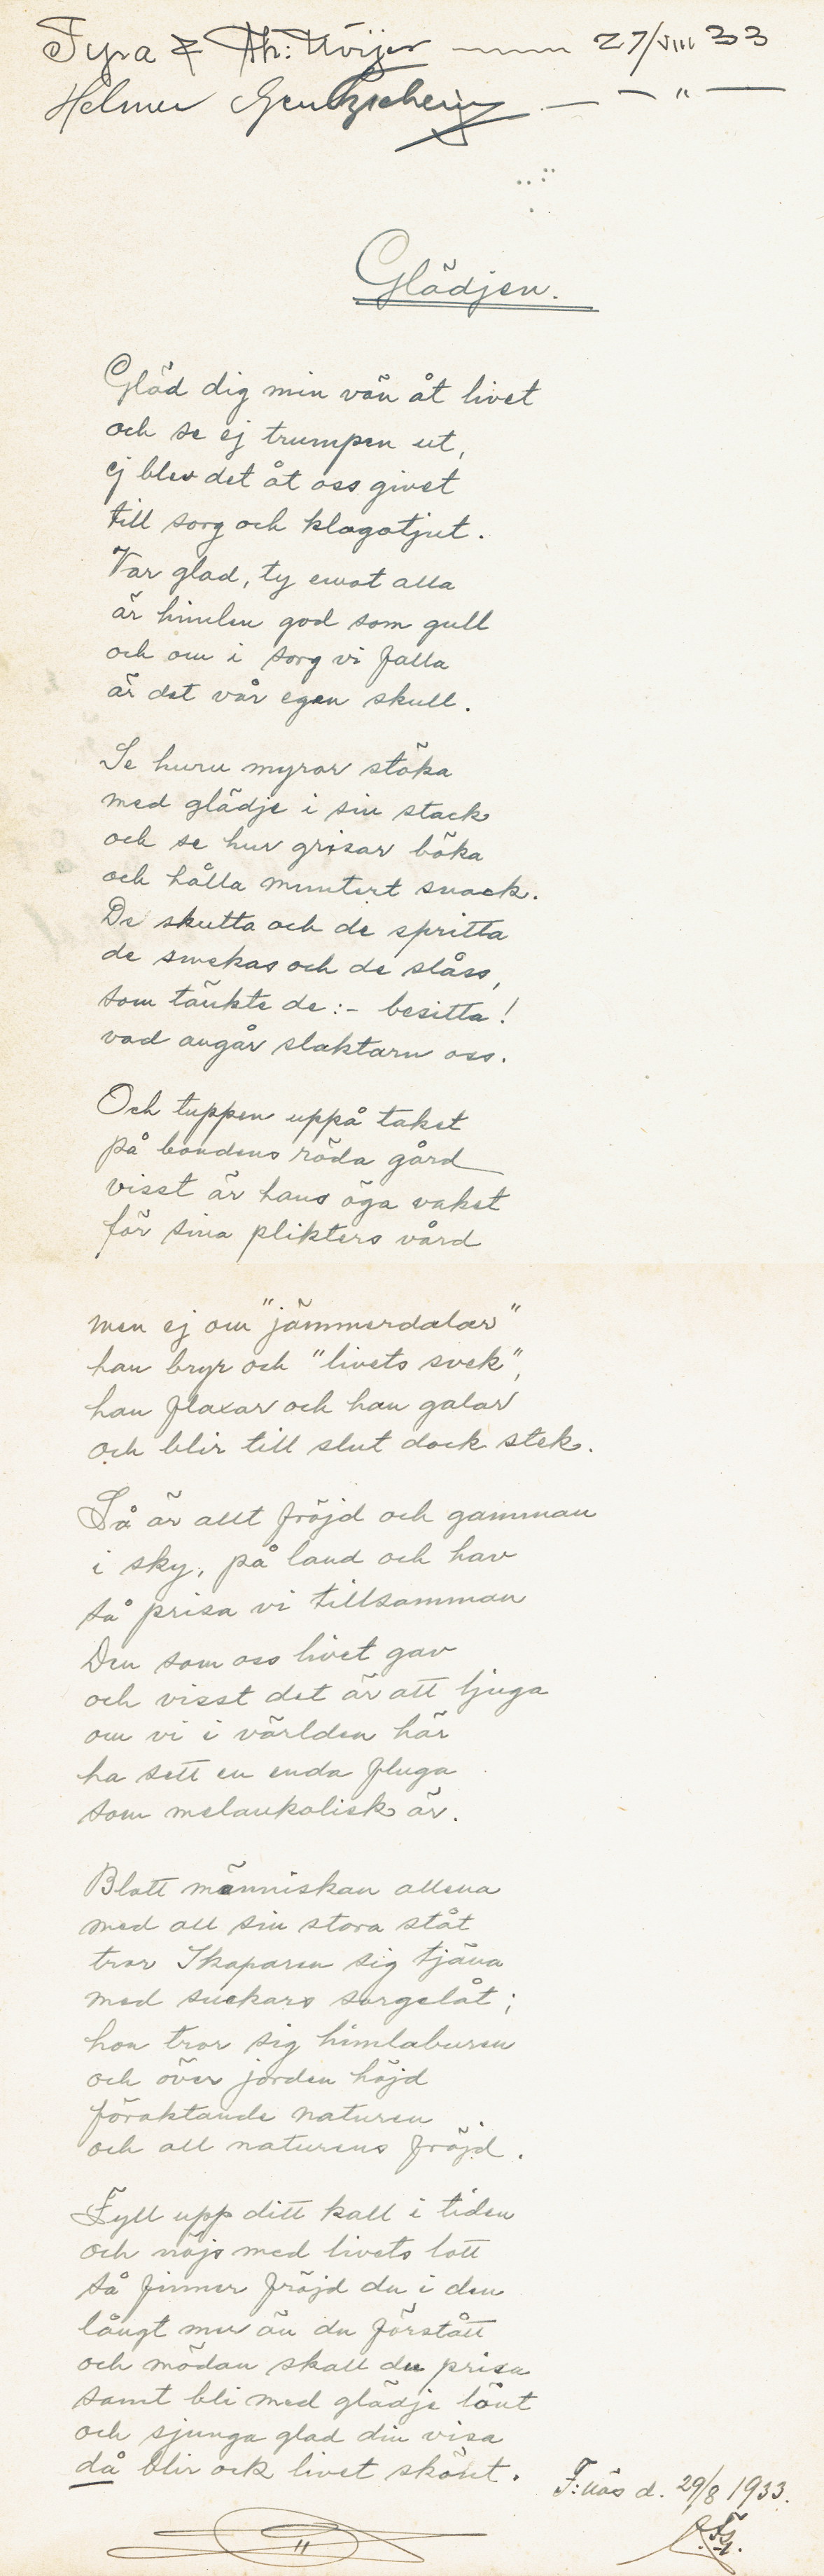 Tyra & Th: Uvijer — 27/VIII 33
Helmer — — " —
Glädjen.
Gläd dig min vän åt livet
och se ej trumpen ut,
ej blev det åt oss givet
till sorg och klagotjut.
Var glad, ty emot alla
är himlen god som gull
och om i sorg vi falla
är det vår egen skull.
Se huru myror stöka
med glädje i sin stack
och se hur grisar böka
och hålla muntert snack.
De skutta och de spritta
de smekas och de slåss,
som tänkte de :- besitta!
vad angår slaktarn oss.
Och tuppen uppå taket
på bondens röda gård
visst är hans öga vaket
för sina plikters vård
men ej om "jämmerdalar"
han bryr och "livets svek",
han flaxar och han galar
och blir till slut dock stek.
Så är allt fröjd och gamman
i sky, på land och hav
så prisa vi tillsamman
Den som oss livet gav
och visst det är att ljuga
om vi i världen här
ha sett en enda fluga
som melankolisk är.
Blott människan allena
med all sin stora ståt
tror Skaparen sig tjäna
med suckars sorgelåt;
hon tror sig himlaburen
och över jorden höjd
föraktande naturen
och all naturens fröjd.
Fyll upp ditt kall i tiden
och nöjs med livets lott
så finner fröjd du i den
långt mer än du förstått
och mödan skall du prisa
samt bli med glädje lönt
och sjunga glad din visa
då blir ock livet skönt.
F:näs d. 29/8 1933.